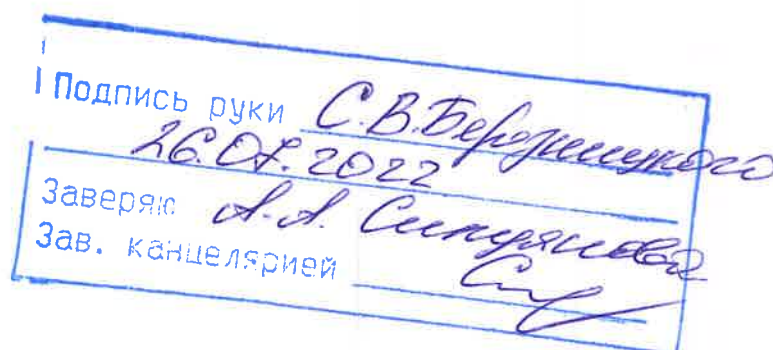 Подпись руки С.В. Березницкого
26.07.2022
Заверяю А.А.
Зав. канцелярией